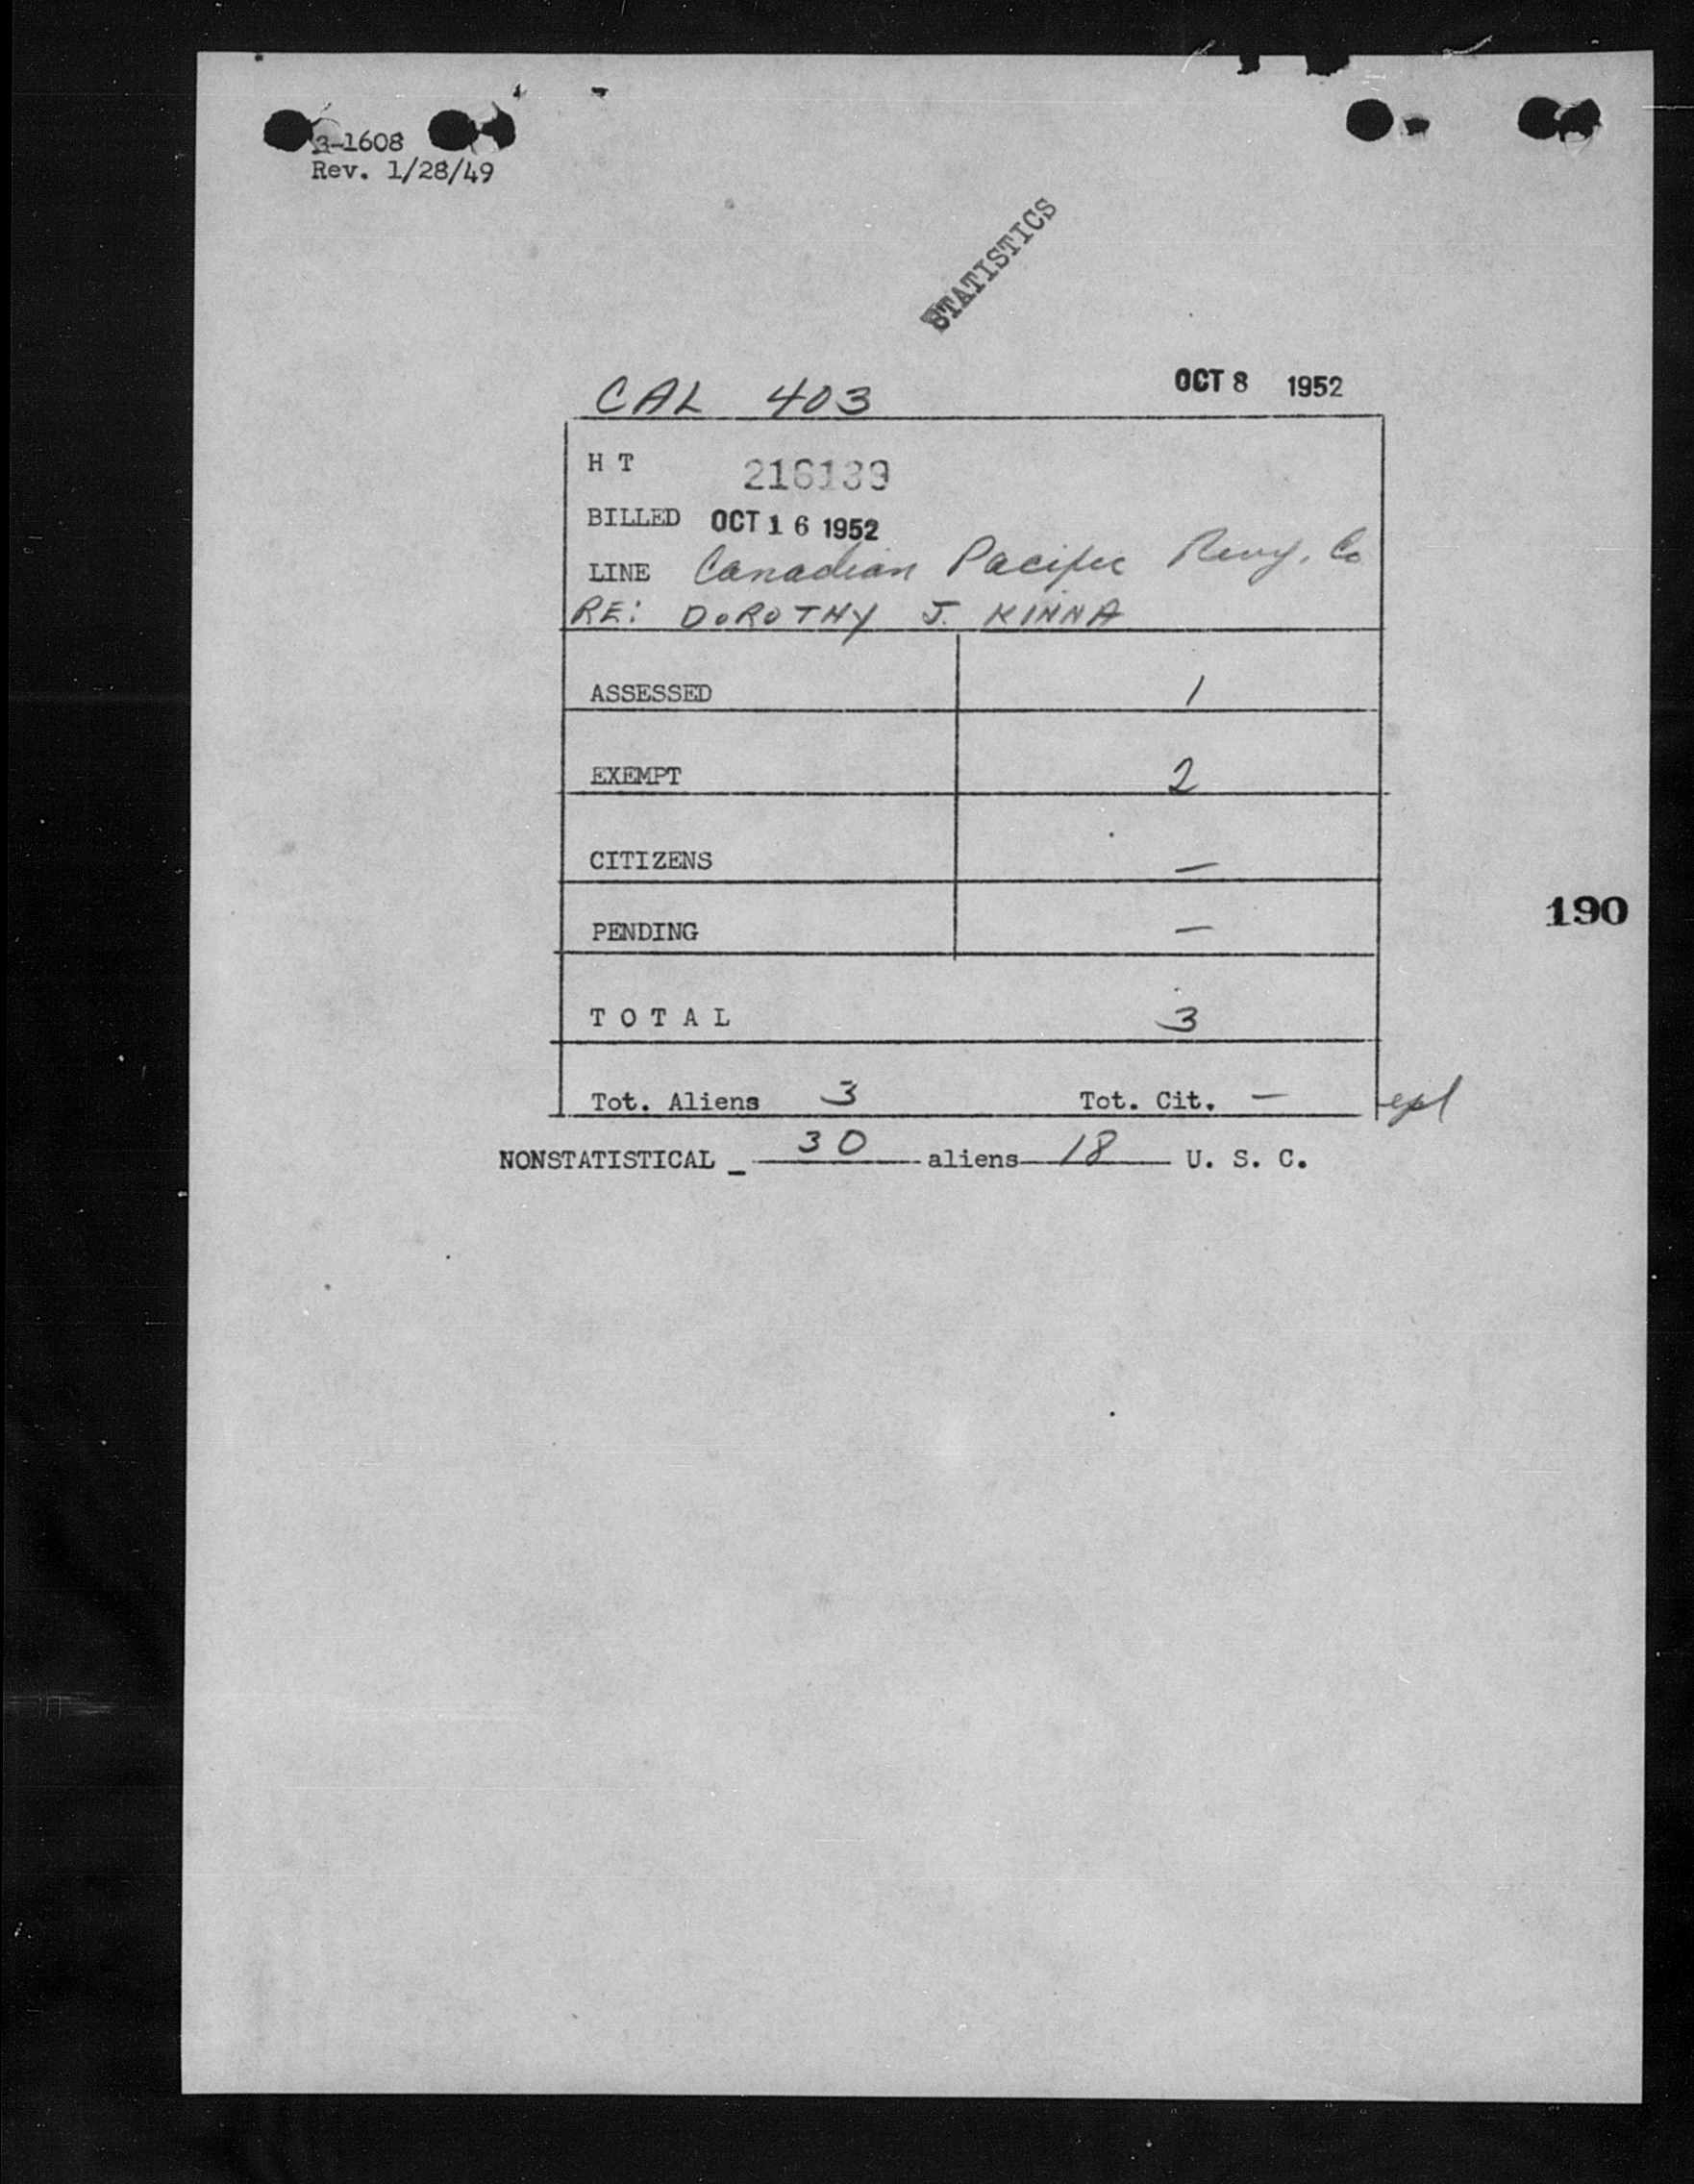 3-1608
Rev. 1/28/49
STATISTICS
CAL 403 OCT 8 1952
H T 216139
BILLED OCT 16 1952
LINE Canadian Pacific Rwy. Co
RE: DOROTHY J. KINNA
ASSESSED 1
EXEMPT 2
CITIZENS —
190
PENDING —
T O T A L 3
Tot. Aliens 3 Tot. Cit. —
NONSTATISTICAL _ 30 aliens 18 U. S. C.